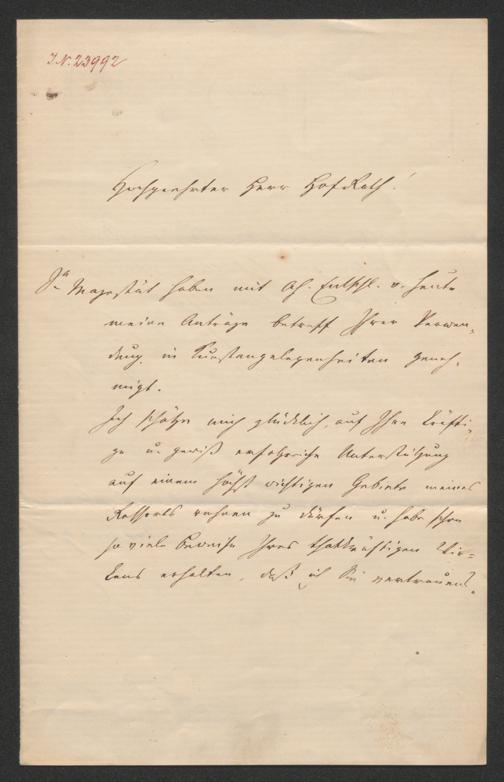 I.N. 23992
Hochgeehrter Herr Hof Rath!
Se Majestät haben mit Ah. Entschl. v. heute
meine Anträge betreff Ihrer Verwen-
dung in Kunstangelegenheiten geneh-
migt.
Ich schätze mich glücklich, auf Ihre kräfti-
ge u. gewiß erfolgreiche Unterstützung
auf einem höchst wichtigen Gebiete meines
Ressorts rechnen zu dürfen u. habe schon
so viele Beweise Ihres thatkräftigen Wir-
kens erhalten, daß ich Sie vertrauens-